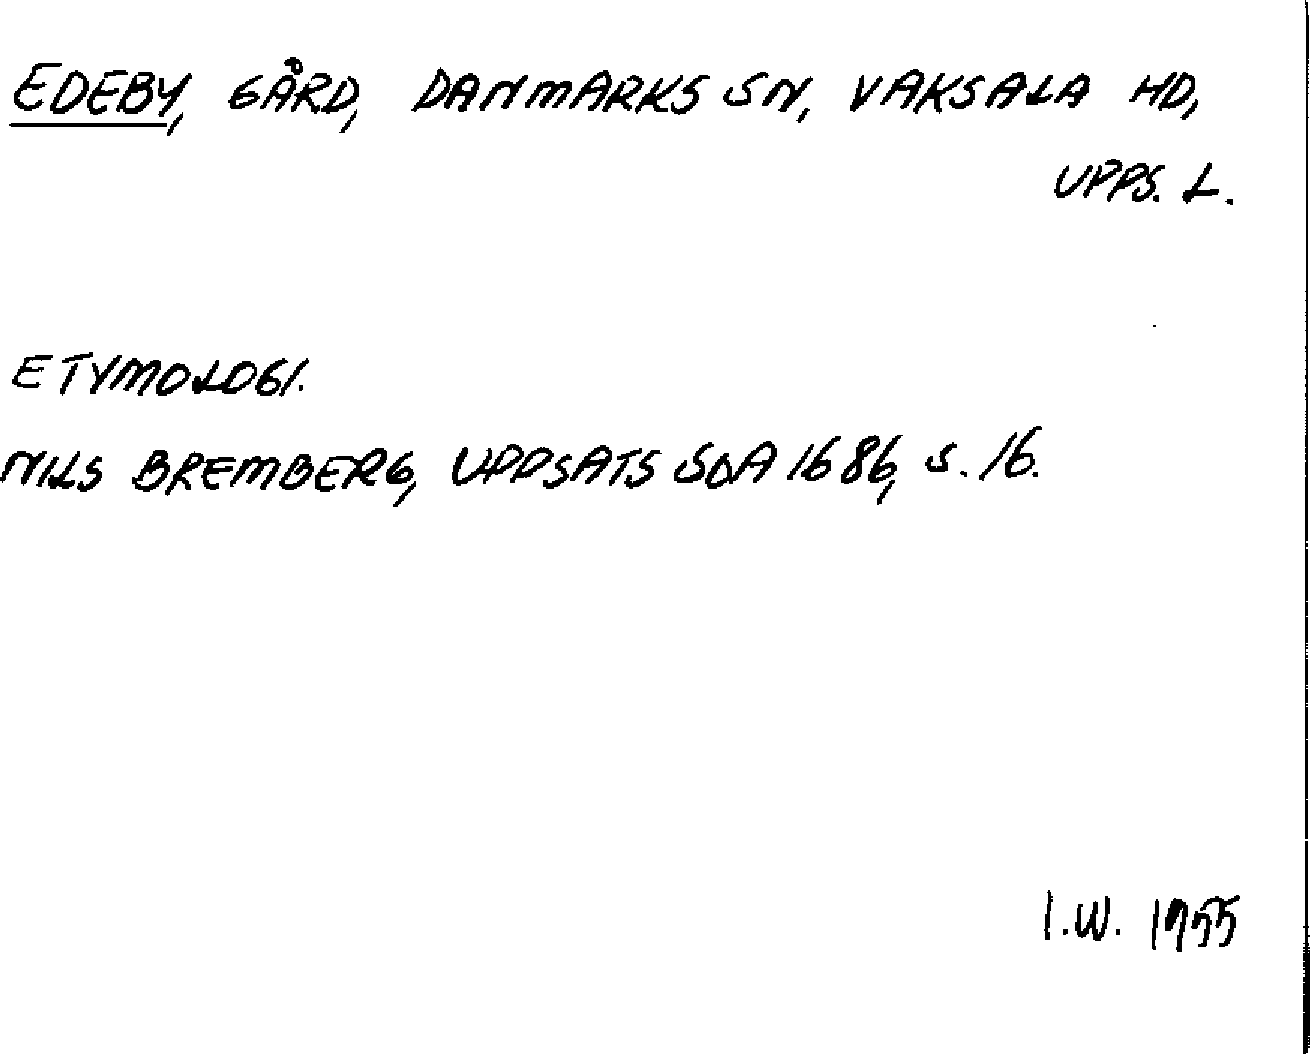 EDEBY, GÅRD, DANMARKS SN, VAKSALA HD,
UPPS. L.
ETYMOLOGI.
NILS BREMBERG, UPPSATS SOA 1686, S. 16.
I.W. 1955